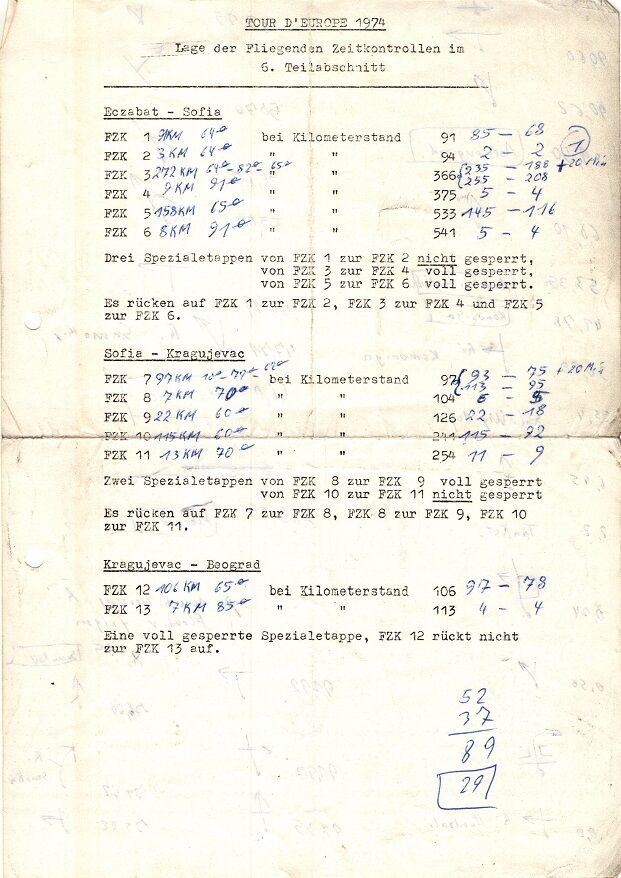 TOUR D'EUROPE 1974
Lage der Fliegenden Zeitkontrollen im
6. Teilabschnitt
Eczabat - Sofia
FZK 1 91KM 64 bei Kilometerstand 91 85 - 68
FZK 2 3KM 64 " " 94 2 - 2 1
FZK 3 272KM 64 - 82 - 65 " " 366 235 - 188 + 20 Min
255 - 208
FZK 4 9KM 91 " " 375 5 - 4
FZK 5 158KM 65 " " 533 145 - 116
FZK 6 8KM 91 " " 541 5 - 4
Drei Spezialetappen von FZK 1 zur FZK 2 nicht gesperrt,
von FZK 3 zur FZK 4 voll gesperrt,
von FZK 5 zur FZK 6 voll gesperrt.
Es rücken auf FZK 1 zur FZK 2, FZK 3 zur FZK 4 und FZK 5
zur FZK 6.
Sofia - Kragujevac
FZK 7 97KM bei Kilometerstand 97 93 - 75 + 20 Min
113 - 95
FZK 8 7KM 70 " " 104 6 - 5
FZK 9 22KM 60 " " 126 22 - 18
FZK 10 115KM 60 " " 241 115 - 92
FZK 11 13KM 70 " " 254 11 - 9
Zwei Spezialetappen von FZK 8 zur FZK 9 voll gesperrt
von FZK 10 zur FZK 11 nicht gesperrt
Es rücken auf FZK 7 zur FZK 8, FZK 8 zur FZK 9, FZK 10
zur FZK 11.
Kragujevac - Beograd
FZK 12 106KM 65 bei Kilometerstand 106 97 - 78
FZK 13 7KM 85 " " 113 4 - 4
Eine voll gesperrte Spezialetappe, FZK 12 rückt nicht
zur FZK 13 auf.
52
37
89
29